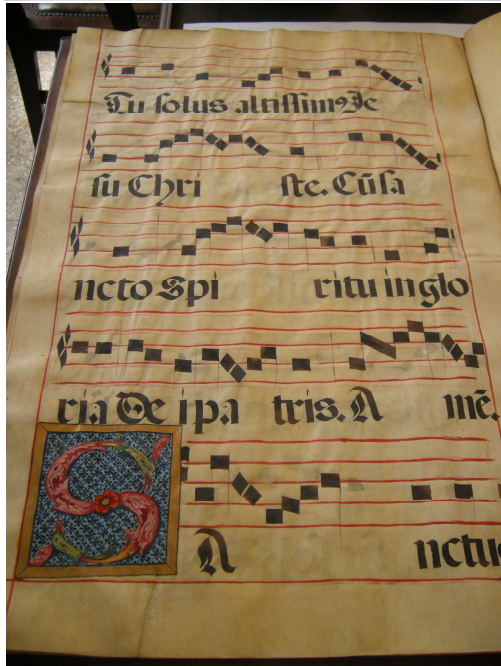 Tu solus altissimꝰ Je
su Chri ste. Cū sa
ncto Spi ritu in glo
ria De i pa tris. A mē.
S A nctus